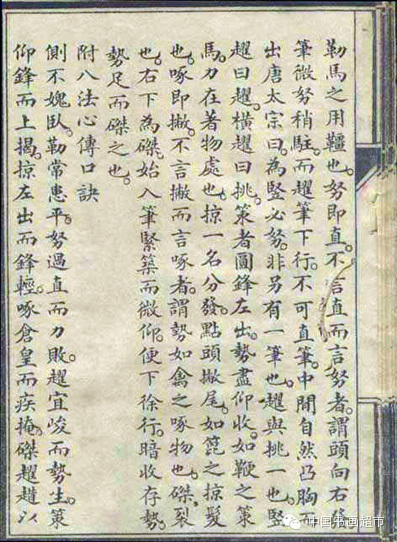 勒馬之用韁也努即直不言直而言努者謂頭向右
筆微努稍駐而趯筆下行不可直筆中間自然凸胸而
出唐太宗曰為竪必努非另有一筆也趯與挑一也竪
趯曰趯橫趯曰挑策者圓鋒左出勢盡仰收如鞭之策
馬力在著物處也掠一名分發點頭撇尾如篦之掠髮
也啄即撇不言撇而言啄者謂勢如禽之啄物也磔裂
也右下為磔始入筆緊築而微仰便下徐行暗收存勢
勢足而磔之也
附八法心傳口訣
側不媿臥勒常患平努過直而力敗趯宜峻而勢生策
仰鋒而上揭掠左出而鋒輕啄倉皇而疾掩磔趯趞以
中国书画超市